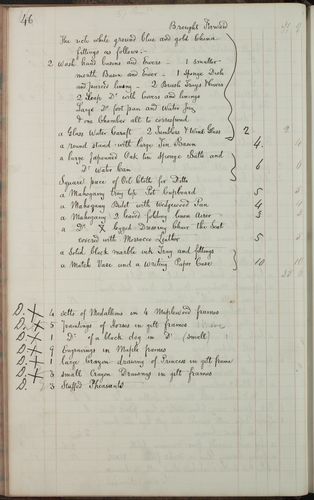 46
Brought Forward
The rich white ground blue and gold China
fittings as follows:-
2 Wash hand basins and Ewers - 1 smaller
mouth Basin and Ewer - 1 Sponge Dish
and pierced lining - 2 Brush Trays & Covers
2 Soap Do with Covers and linings
Large Do foot pan and Water Jug
& one Chamber all to correspond
a Glass Water Caraft 2 Tumblers & Wine Glass 2
a round stand with large Tin Bason 4
a large Japanned Oak tin Sponge Bath and
Do Water Can 6 6
Square piece of Oil Cloth for Ditto
a Mahogany Tray top Pot Cupboard 5 5
a Mahogany Bidet with Wedgewood Pan 4 4
a Mahogany 2 leaved folding linen Airer 3 3
a Do X legged Dressing Chair the Seat
covered with Morrocco Leather 5 5
a Solid black marble ink Tray and fittings
a Match Vase and a Writing Paper Case 10 10
D. X 4 setts of Medallions in 4 Maplewood frames
D. X 5 Paintings of Horses in gilt frames
D. X 1 Do of a black dog in Do (small)
D. X 9 Engravings in Maple frames
D. X 1 large Crayon drawing of Princess in gilt frame
D. X 3 small Crayon Drawings in gilt frames
D. 3 Stuffed Pheasants